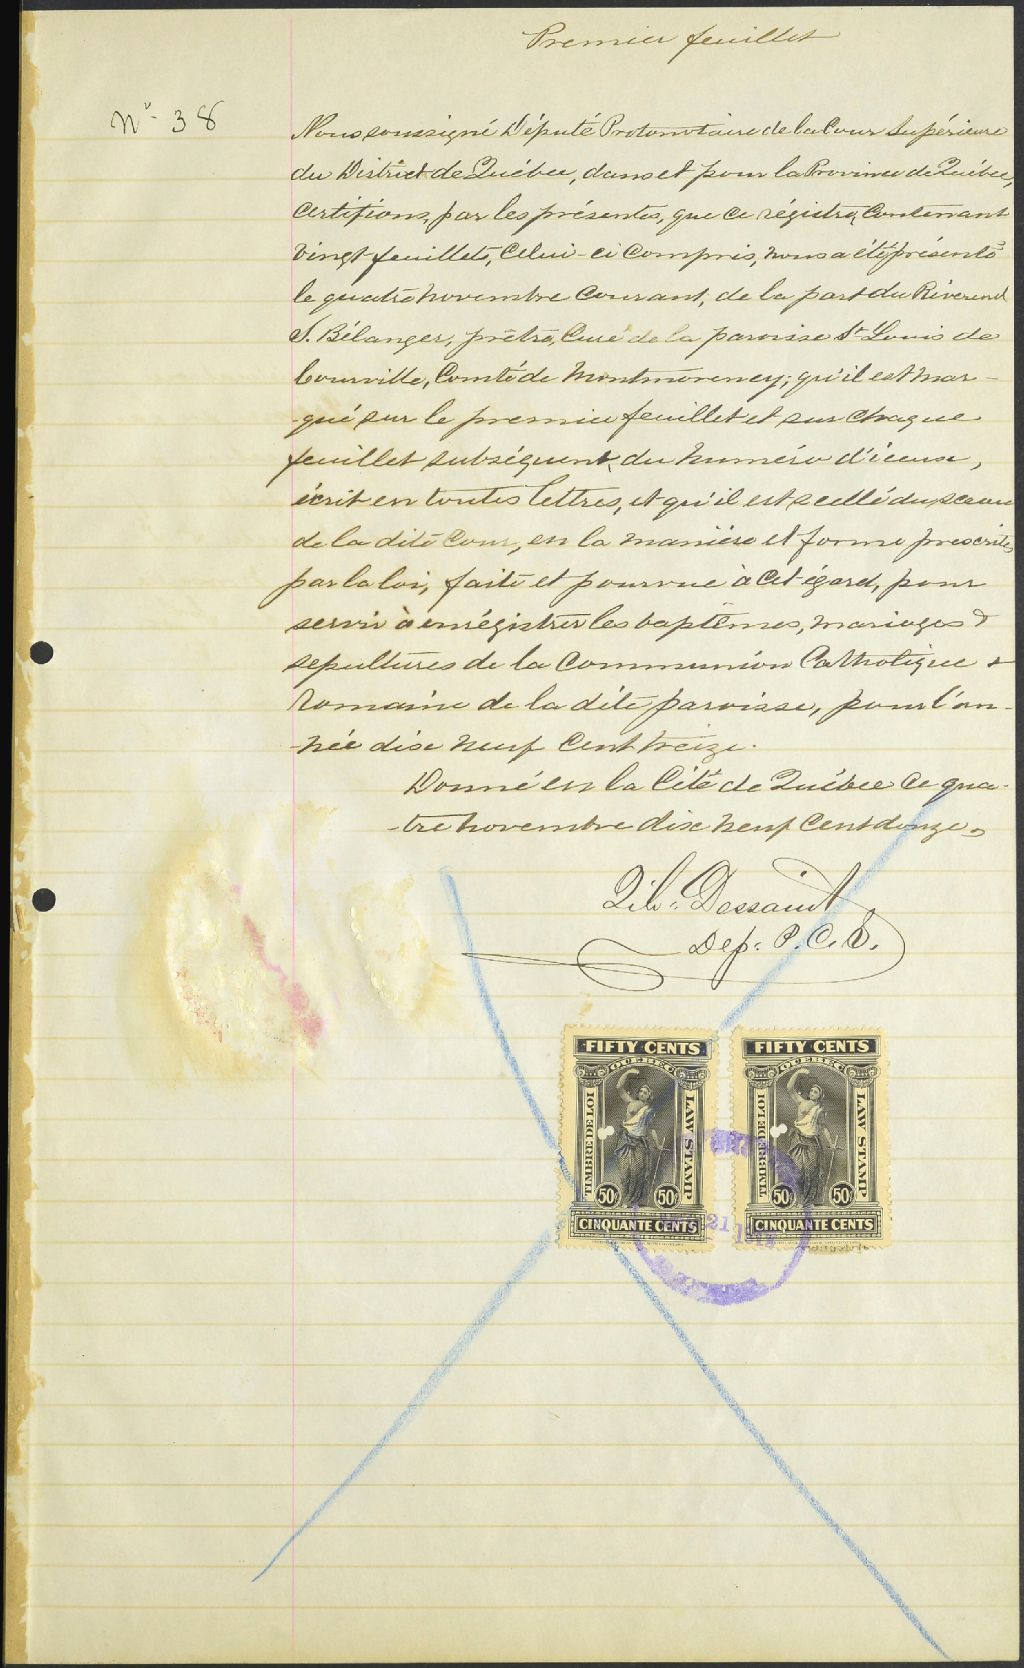 Premier feuillet
No 38
Nous soussigné Député Protonotaire de la Cour Supérieure
du District de Québec, dans et pour la Province de Québec,
Certifions, par les présentes, que ce régistre, Contenant
Vingt feuillets, Celui-ci Compris, nous a été présenté
le quatre novembre Courant, de la part du Révérend
J. Bélanger, prêtre, Curé de la paroisse St Louis de
Courville, Comté de Montmorency; qu'il est mar-
-qué sur le premier feuillet et sur chaque
feuillet subséquent, du numéro d'iceux,
écrit en toutes lettres, et qu'il est scellé du sceau
de la dite Cour, en la manière et forme prescrites
par la loi, faite et pourvue à cet égard, pour
servir à enrégistrer les baptêmes, mariages &
sepultures de la Communion Catholique &
romaine de la dite paroisse, pour l'an-
-née dix neuf Cent treize.
Donné en la Cité de Québec ce qua-
-tre novembre dix neuf Cent douze.
Dessaint
Dep. P. C. S.
FIFTY CENTS FIFTY CENTS
QUEBEC QUEBEC
TIMBRE DE LOI LAW STAMP TIMBRE DE LOI LAW STAMP
50 50 50 50
CINQUANTE CENTS CINQUANTE CENTS
21